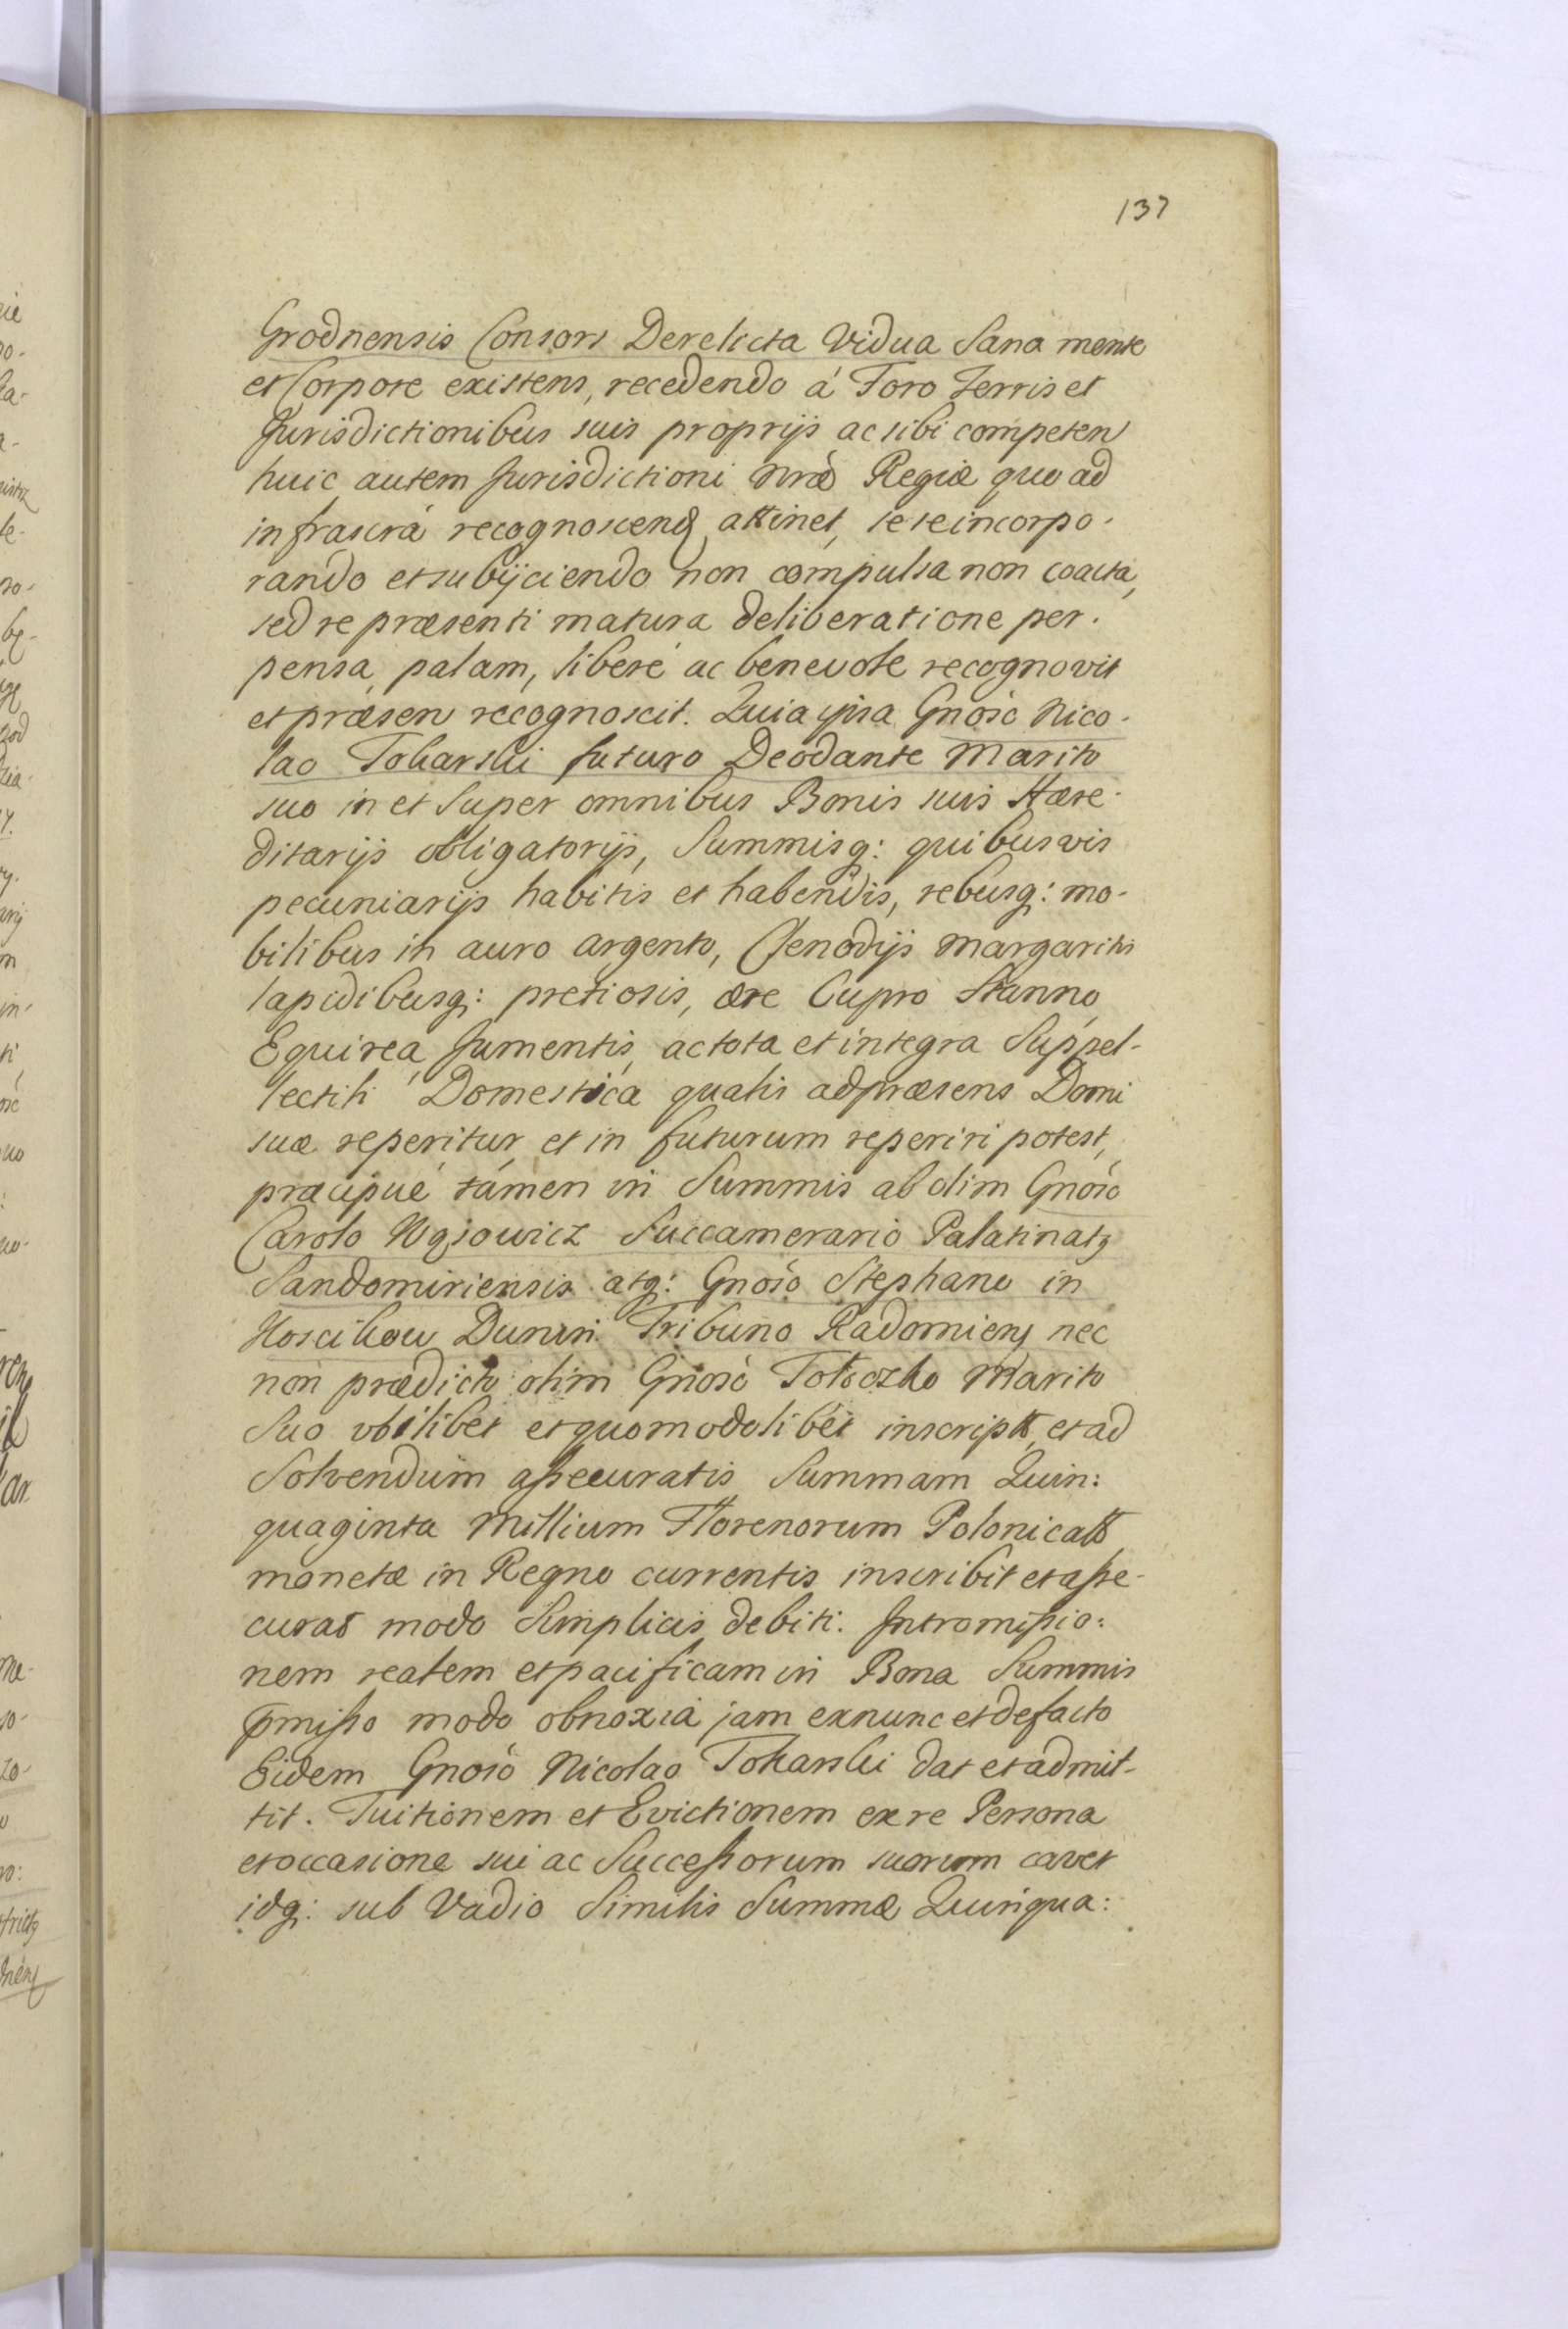 137
Grodnensis Consors Derelicta Vidua Sana mente
et Corpore existens, recedendo á Foro Terris et
Jurisdictionibus suis proprijs ac sibi competen
huic autem Jurisdictioni nræ Regiæ quo ad
infrascrá recognoscenq attinet, sese incorpo-
rando et subijciendo non compulsa non coacta,
sed re præsenti matura deliberatione per-
pensa, palam, liberé ac benevole recognovit
et præsen recognoscit. Quia ipsa Gnoso Nico-
lao Tokarski futuro Deodante Marito
suo in et Super omnibus Bonis suis Hære-
ditarijs obligatorijs, Summisq: quibusvis
pecuniarijs habitis et habendis, rebusq: mo-
bilibus in auro argento, Clenodijs margaritis
lapidibusq: pretiosis, ære Cupro Stanno,
Equirea, Jumentis, ac tota et integra Suppel-
lectili Domestica qualis ad præsens Domi
suæ reperitur, et in futurum reperiri potest,
præcipué támen in Summis ab olim Gnoso
Carolo Succamerario Palatinatq
Sandomiriensis atq: Gnoso Stephano in
Dunin Tribuno Radomienq nec
non prædicto olim Gnoso Tołoczko Marito
Suo ubilibet et quomodolibét inscriptt, et ad
Solvendum assecuratis Summam Quin:
quaginta Millium Florenorum Polonicatt
monetæ in Regno currentis inscribit et asse-
curat modo Simplicis debiti. Intromissio:
nem realem et pacificam in Bona Summis
pmisso modo obnoxia jam exnunc et defacto
Eidem Gnoso Nicolao Tokarski dat et admit-
tit. Tuitionem et Evictionem ex re Persona
et occasione sui ac Successorum suorum cavet
idq: sub Vadio Similis Summæ Quinqua: